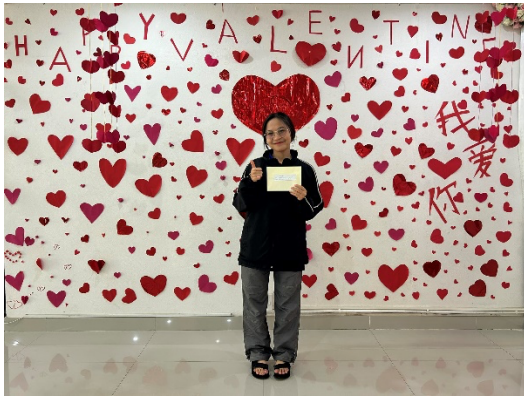 HAPPY VALENTINE
我爱你